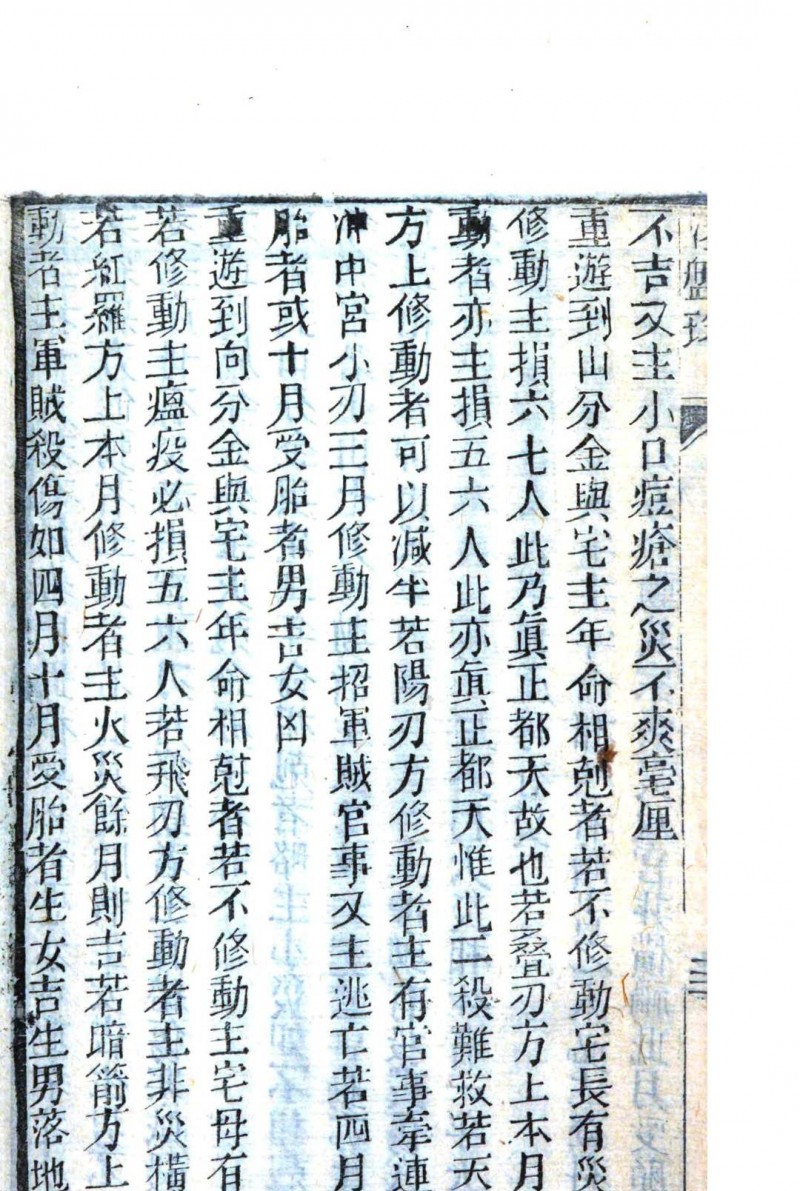 不吉又主小口痘瘡之災不爽毫厘
重遊到山分金與宅主年命相尅者若不修動宅長有災
修動主損六七人此乃眞正都天故也若叠刃方上本月
動者亦主損五六人此亦眞正都天惟此二殺難救若天
方上修動者可以减半若陽刃方修動者主有官事牽連
冲中宮小刃三月修動主招軍賊官事又主逃亡若四月
胎者或十月受胎者男吉女凶
重遊到向分金與宅主年命相尅者若不修動主宅母有
若修動主瘟疫必損五六人若飛刃方修動者主非災橫
若紅羅方上本月修動者主火災餘月則吉若暗箭方上
動者主軍賊殺傷如四月十月受胎者生女吉生男落地